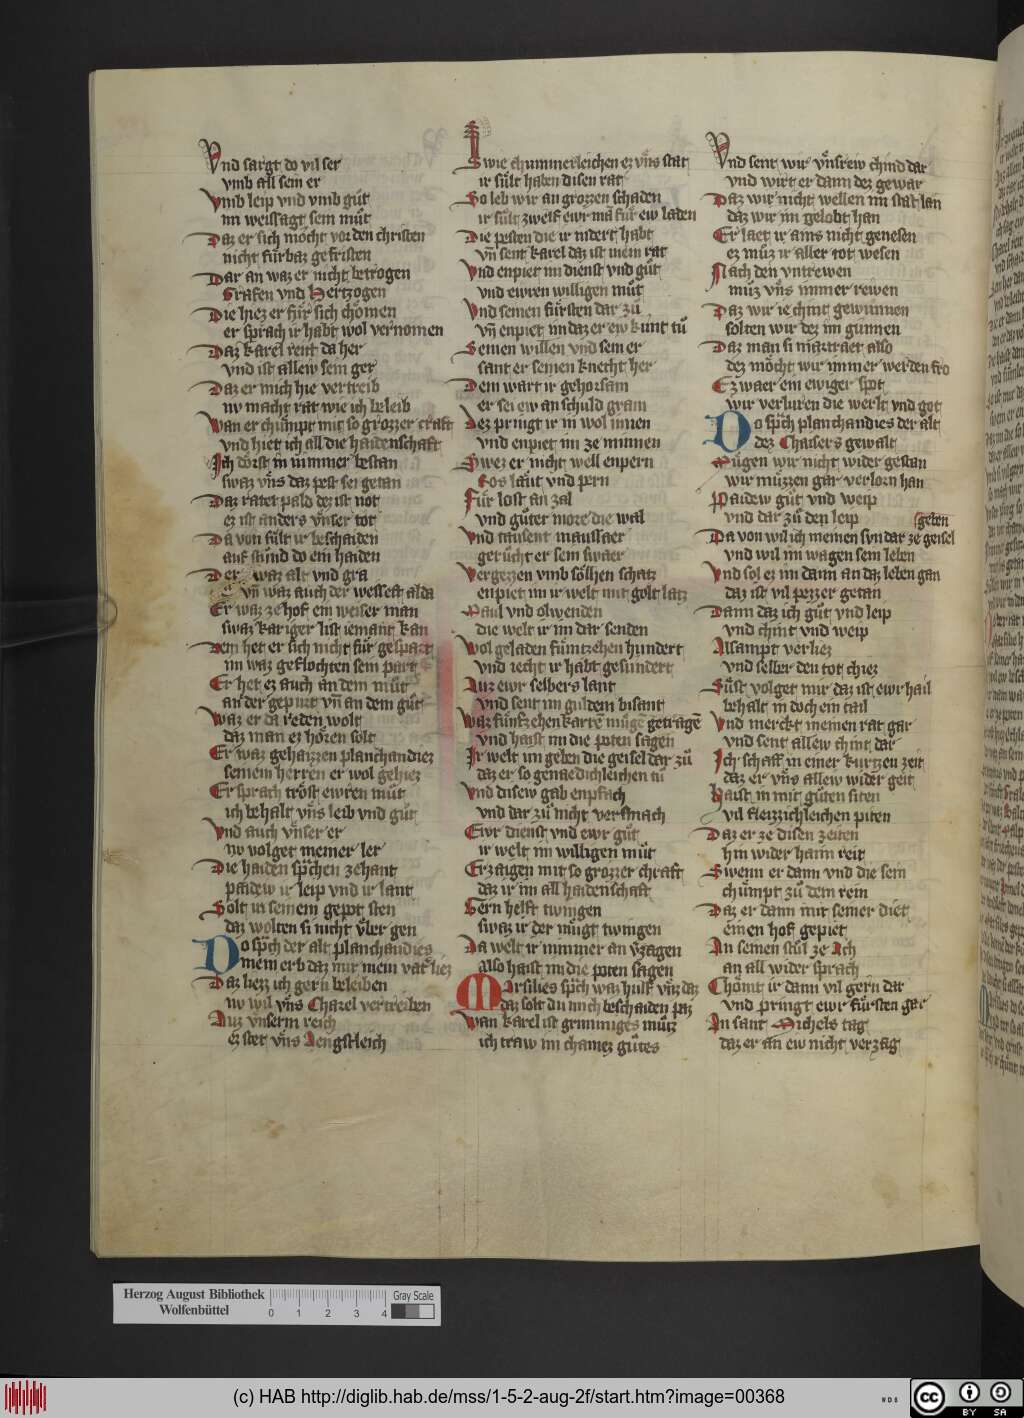 Vnd sargt do vil ser
vmb all sein er
Vmb leip vnd vmb gůt
im weissagt sein můt
Daz er sich möcht vor den christen
nicht fürbaz gefristen
Dar an waz er nicht betrogen
Grafen vnd Hertzogen
Die hiez er für sich chömen
er sprach ir habt wol vernomen
Daz karel reit da her
vnd ist allew sein ger
Daz er mich hie vertreib
nv macht rat wie ich beleib
Wan er chümpt mit so grozzer craft
vnd hiet ich all die haidenschaft
Ich dörst in nimmer bestan
swaz vns daz pest sei getan
Daz ratet pald dez ist not
ez ist anders vnser tot
Da von sült ir beschaiden
auf stůnd do ein haiden
Der waz alt vnd gra
vn waz auch der weisest alda
Er waz ze hof ein weiser man
swaz kariger list iemant kan
Dem het er sich nicht für gespart
im waz geflochten sein part
Er het ez auch an dem můt
an der gepurt vn an dem gůt
Waz er da reden wolt
daz man ez hören solt
Er waz gehaizzen planchandiez
seinem herren er wol gehiez
Er sprach tröst ewren můt
ich behalt vns leib vnd gůt
Vnd auch vnser er
nv volget meiner ler
Die haiden sp̄chen zehant
paidew ir leip vnd ir lant
Solt in seinem gepot sten
daz wolten si nicht vber gen
Do sp̄ch der alt planchandies
mein erb daz mir mein vater liez
Daz liezz ich gern beleiben
nv wil vns Charel vertreiben
Auz vnserm reich
ez stet vns Aengstleich
Swie chummerleichen ez vns stat
ir sült haben disen rat
So leb wir an grozzen schaden
ir sült zwelf ewr man für ew laden
Die pesten die ir nidert habt
vn sent karel daz ist mein rat
Vnd enpiet im dienst vnd gůt
vnd ewren willigen můt
Vnd seinen fürsten dar zů
vn enpiet im daz er ew kunt tů
Seinen willen vnd sein er
sant er seinen knecht her
Dem wart ir gehorsam
er sei ew an schuld gram
Dez pringt ir in wol innen
vnd enpiet im ze minnen
Swez er nicht well enpern
Ros laut vnd pern
Für lost an zal
vnd gůter more die wal
Vnd tausent mausaer
gerücht er sein swaer
Vergezzen vmb sölhen schatz
enpiet im ir welt mit golt latz
Maul vnd olwenden
die welt ir im dar senden
Wol geladen fümtzehen hundert
vnd iecht ir habt gesundert
Auz ewr selbers lant
vnd sent im guldein bisant
Waz fünfzehen karre müge getrage
vnd haist im die poten sagen
Ir welt im geben die geisel dar zů
daz er so genaedichleichen tů
Vnd disew gab enpfach
vnd dar zů nicht versmach
Ewr dienst vnd ewr gůt
ir welt im willigen můt
Erzaigen mit so grozzer chraft
daz ir im all haidenschaft
Gern helft twingen
swaz ir der mügt twingen
Da welt ir nimmer an verzagen
also haist im die poten sagen
Marsilies sp̄ch waz hulf vnz daz
daz solt du mich beschaiden paz
Wan karel ist grimmiges můtz
ich traw im chainez gůtes
Vnd sent wir vnsrew chind dar
vnd wirt er dann dez gewar
Daz wir nicht wellen im stat lan
daz wir im gelobt han
Er laet ir ains nicht genesen
ez můz ir aller tot wesen
Nach den vntrewen
můz vns immer rewen
Daz wir ie chint gewunnen
solten wir dez im gunnen
Daz man si martraet also
dez möcht wir immer werden fro
Ez waer ein ewiger spot
wir verluren die werlt vnd got
Do sp̄ch planchandies der alt
dez Chaisers gewalt
Mügen wir nicht wider gestan
wir müzzen gar verlorn han
Paidew gůt vnd weip
vnd dar zů den leip
geben
Da von wil ich meinen svn dar ze geisel
vnd wil im wagen sein leben
Vnd sol ez im dann an daz leben gan
daz ist vil pezzer getan
Dann daz ich gůt vnd leip
vnd chint vnd weip
Alsampt verliez
vnd selber den tot chiez
Süst volget mir daz ist ewr hail
behalt in doch ein tail
Vnd merckt meinen rat gar
vnd sent allew chint dar
Ich schaff in einer kurtzen zeit
daz er vns allew wider geit
Haist in mit gůten siten
vil fleizzichleichen piten
Daz er ze disen zeiten
hin wider haim reit
Swenn er dann vnd die sein
chümpt zů dem rein
Daz er dann mit seiner diet
einen hof gepiet
In seinen stůl ze Ach
an all wider sprach
Chömt ir dann vil gern dar
vnd pringt ewr fürsten gar
In sant Michels tag
daz er an ew nicht verzag
Herzog August Bibliothek
Wolfenbüttel
0 1 2 3 4
Gray Scale
(c) HAB http://diglib.hab.de/mss/1-5-2-aug-2f/start.htm?image=00368
cc BY SA